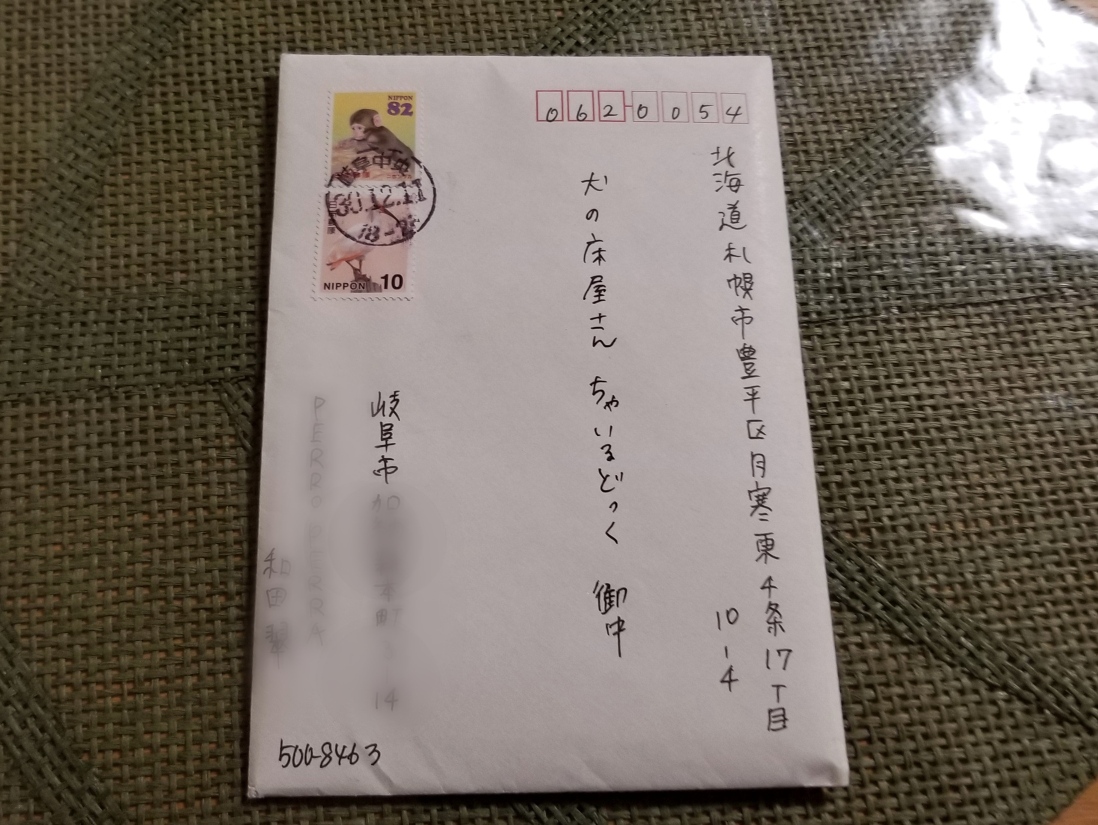 0620054
北海道札幌市豊平区月寒東4条17丁目
10-4
犬の床屋さん ちゃいるどっく 御中
NIPPON 82
岐阜中央
30.12.11
NIPPON 10
岐阜市
14
PERRO PERRA
和田
500-8463